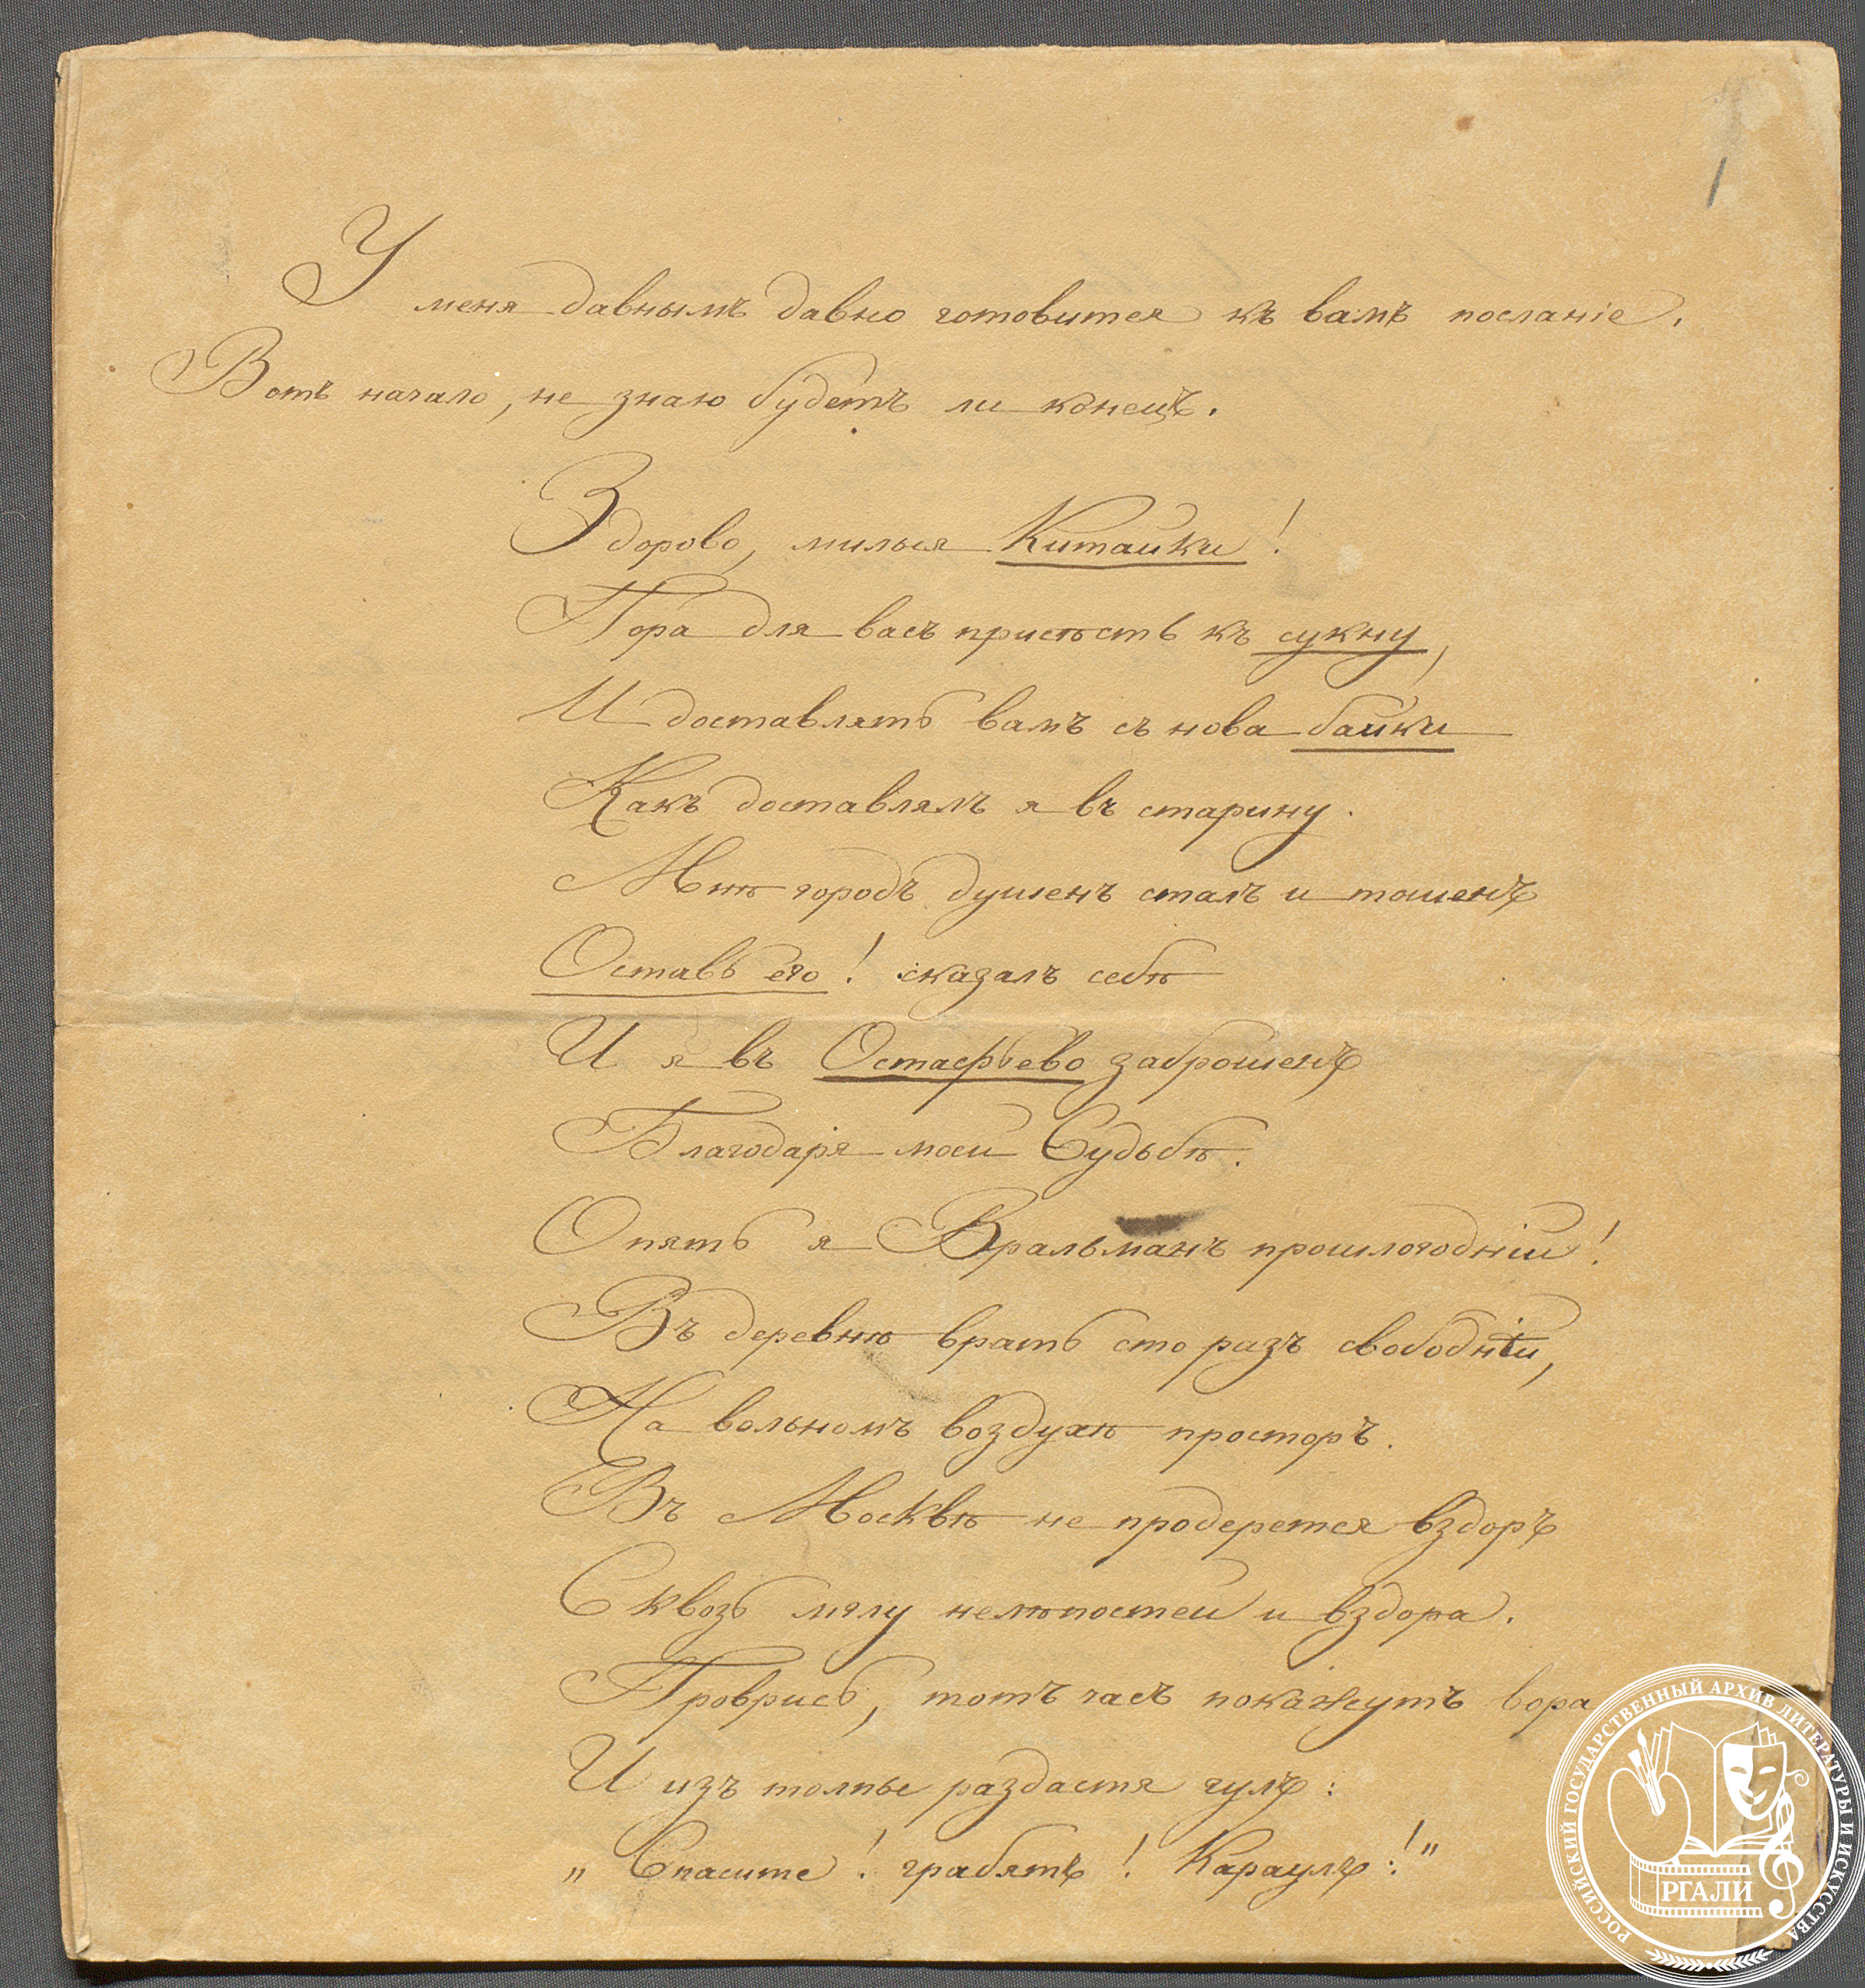 1
У меня давнымъ давно готовится къ вамъ посланіе.
Вотъ начало, не знаю будетъ ли конецъ.
Здорово, милыя Китайки!
Пора для васъ присѣсть къ сукну,
И доставлять вамъ съ нова байки
Какъ доставлялъ я въ старину.
Мнѣ городъ душенъ сталъ и тошенъ
Оставь его! сказалъ себѣ
И я въ Остафьево заброшенъ
Благодаря моей Судьбѣ.
Опять я Вральманъ прошлогодній!
Въ деревнѣ врать сто разъ свободнѣй,
На вольномъ воздухѣ просторъ.
Въ Москвѣ не продерется вздоръ
Сквозь мглу нелѣпостей и вздора.
Проврись, тотъ часъ покажутъ вора
И изъ толпы раздастся гулъ:
„Спасите! грабятъ! Караулъ!"
РОССИЙСКИЙ ГОСУДАРСТВЕННЫЙ АРХИВ ЛИТЕРАТУРЫ И ИСКУССТВА
РГАЛИ